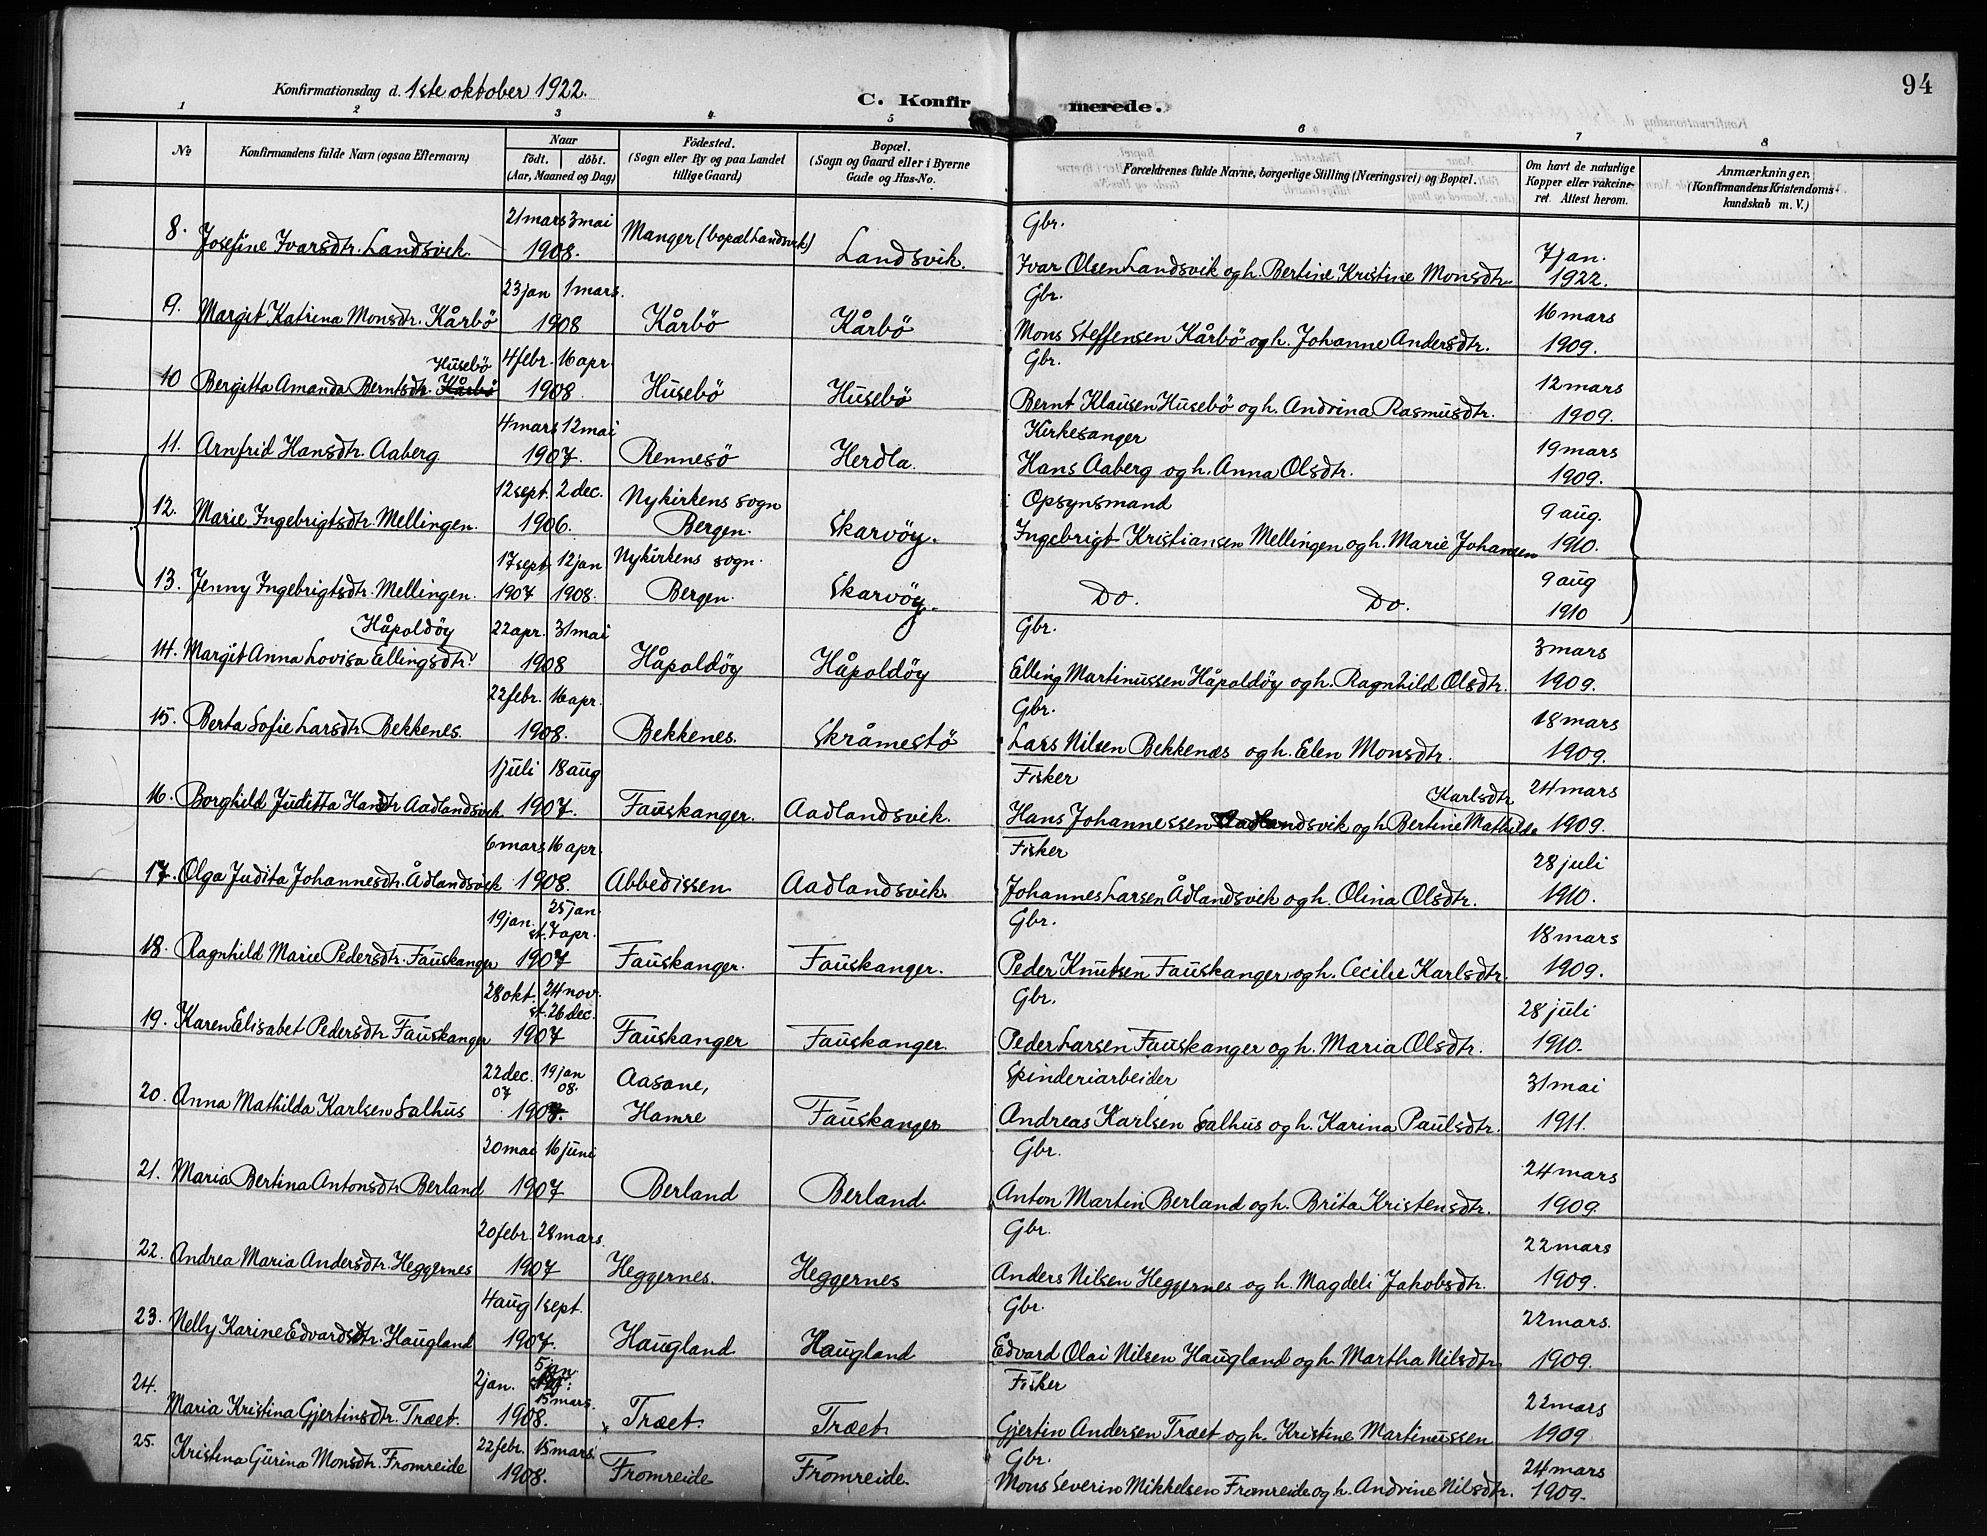 94
Konfirmationsdag d. 1ste oktober 1922.
C. Konfirmerede.
1 2 3 4 5 6 7 8
No
Konfirmandens fulde Navn (ogsaa Efternavn)
Naar
födt. döbt.
(Aar, Maaned og Dag)
Födested.
(Sogn eller By og paa Landet
tillige Gaard)
Bopæl.
(Sogn og Gaard eller i Byerne
Gade og Hus-No.
Forældrenes fulde Navne, borgerlige Stilling (Næringsvei) og Bopæl.
Om havt de naturlige
Kopper eller vakcine-
ret. Attest herom.
Anmærkninger.
(Konfirmandens Kristendoms-
kundskab m. V.)
21 mars 3 mai Gbr.
8. Josefine Ivarsdtr. Landsvik. 1908. Manger (bopæl Landsvik) Landsvik. Ivar Olsen Landsvik og h. Bertine Kristine Monsdtr. 7 jan. 1922.
23 jan 1 mars. Gbr.
9. Margit Katrina Monsdtr. Kårbö 1908 Kårbö Kårbö Mons Steffensen Kårbö og h. Johanne Andersdtr. 16 mars 1909.
Husebö 4 febr. 16 apr. Gbr.
10 Bergitta Amanda Berntsdtr. Kårbö 1908 Husebö Husebö Bernt Klausen Husebö og h. Andrina Rasmusdtr. 12 mars 1909.
4 mars 12 mai Kirkesanger
11. Arnfrid Hansdtr. Aaberg 1907. Rennesö Herdla. Hans Aaberg og h. Anna Olsdtr. 19 mars 1909.
12 sept. 2 dec. Nykirkens sogn Opsynsmand
12. Marie Ingebrigtsdtr. Mellingen. 1906. Bergen. Skarvöy. Ingebrigt Kristiansen Mellingen og h. Marie Johansen 9 aug. 1910.
17 sept 12 jan Nykirkens sogn.
13. Jenny Ingebrigtsdtr. Mellingen. 1907 1908. Bergen. Skarvöy. Do. Do. 9 aug 1910
Håpoldöy 22 apr. 31 mai Gbr.
14. Margit Anna Lovisa Ellingsdtr. 1908 Håpoldöy Håpoldöy Elling Martinussen Håpoldöy og h. Ragnhild Olsdtr. 3 mars 1909.
22 febr. 16 apr. Gbr.
15. Berta Sofie Larsdtr. Bekkenes. 1908. Bekkenes. Skråmestö Lars Nilsen Bekkenæs og h. Elen Monsdtr. 18 mars 1909.
1 juli 18 aug Fisker Karlsdtr
16. Borghild Juditta Hansdtr. Aadlandsvik 1907. Fauskanger. Aadlandsvik. Hans Johannessen Aadlandsvik og h Bertine Mathilde 24 mars 1909.
6 mars 16 apr. Fisker
17. Olga Judita Johannesdtr. Ådlandsvik 1908. Abbedissen Aadlandsvik. Johannes Larsen Ådlandsvik og h. Olina Olsdtr. 28 juli 1910.
19 jan. 25 jan st. 7 apr. Gbr.
18. Ragnhild Marie Pedersdtr. Fauskanger 1907 Fauskanger. Fauskanger. Peder Knutsen Fauskanger og h. Cecilie Karlsdtr. 18 mars 1909.
28 okt. 24 nov. st. 26 dec. Gbr.
19. Karen Elisabet Pedersdtr. Fauskanger 1907 Fauskanger Fauskanger Peder Larsen Fauskanger og h. Maria Olsdtr. 28 juli 1910.
22 dec. 07 19 jan 08. Aasane, Spinderiarbeider
20. Anna Mathilda Karlsen Salhus 1907. Hamre Fauskanger Andreas Karlsen Salhus og h. Karina Paulsdtr. 31 mai 1911.
20 mai 16 juni Gbr.
21. Maria Bertina Antonsdtr Berland 1907 Berland Berland Anton Martin Berland og h. Brita Kristensdtr. 24 mars 1909
20 febr. 28 mars. Gbr.
22. Andrea Maria Andersdtr. Heggernes 1907 Heggernes. Heggernes Anders Nilsen Heggernes og h. Magdeli Jakobsdtr. 22 mars 1909.
4 aug 1 sept. Gbr.
23. Nelly Karine Edvardsdtr. Haugland 1907. Haugland Haugland Edvard Olai Nilsen Haugland og h. Martha Nilsdtr. 22 mars. 1909.
2 jan. 5 jan 15 mars. Fisker
24. Maria Kristina Gjertinsdtr. Træet. 1908. Træet. Træet. Gjertin Andersen Træet og h. Kristine Martinussen 22 mars 1909
22 febr. 15 mars. Gbr.
25. Kristena Gurina Monsdtr. Fromreide 1908. Fromreide Fromreide. Mons Severin Mikkelsen Fromreide og h. Andrine Nilsdtr. 24 mars 1909.